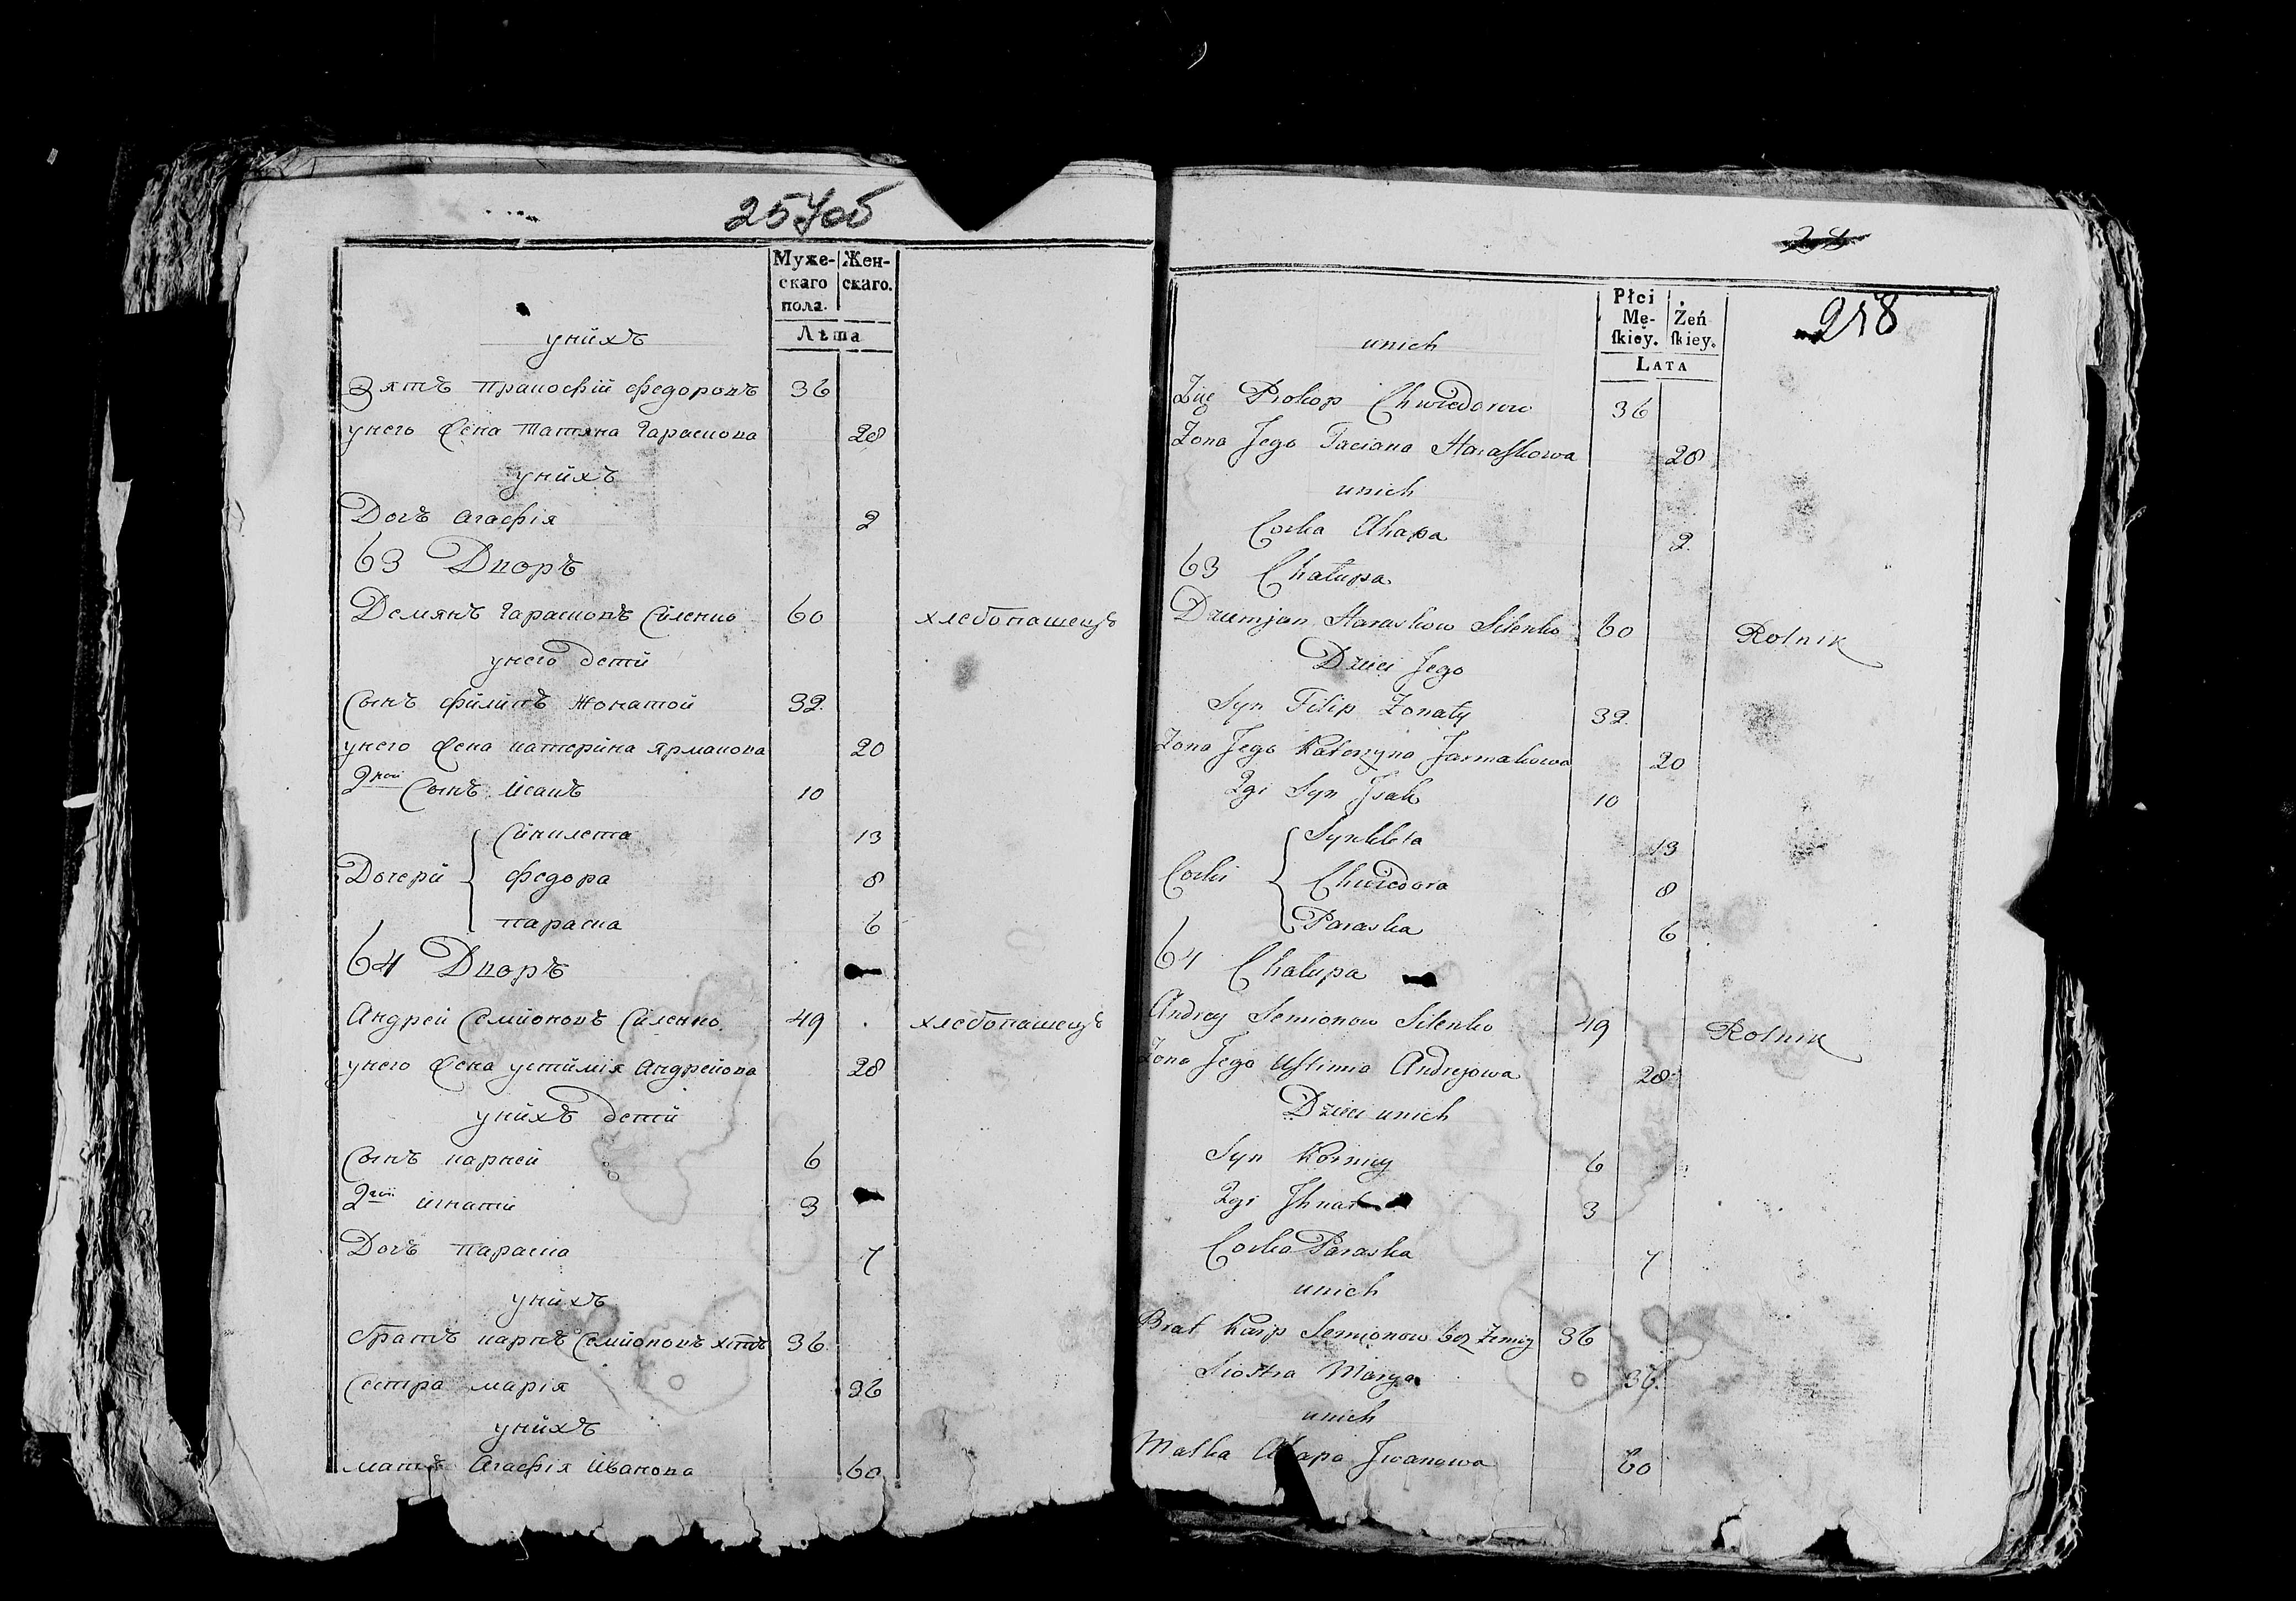 257об
Муже-
скаго
пола.
Жен-
скаго.
Лѣта
унихъ
Зятъ Прокофій федоровъ 36
унего жена Татяна Гараскова 28
унихъ
Дочъ агафія 2
63 Дворъ
Демянъ Гарасковъ Силенко 60 хлебопашецъ
унего дети
Сынъ филипъ жонатой 32
унего жена катерина ярмакова 20
2кой Сынъ исакъ 10
Дочери
Синклета 13
федора 8
параска 6
64 Дворъ
Андрей Семионовъ Силенко 49 хлебопашецъ
унего жена устимія Андрейова 28
унихъ дети
Сынъ карней 6
2гий игнатй 3
Дочъ параска 7
унихъ
братъ карпъ Семионовъ 36
Сестра марія 36
унихъ
мать Агафія Иванова 60
258
Płci
Mę-
skiey.
Żeń
skiey.
LATA
unich
Zięć Prokop Chwiedorow 36
Zona Jego Taciana Haraskowa 28
unich
Corka Ahapa 2
63 Chałupa
Dziemjan Haraskow Silenko 60 Rolnik
Dzieci Jego
Syn Filip Zonaty 32
Zona Jego Katerzyna Jarmakowa 20
2gi Syn Jsak 10
Corki
Synkleta 13
Chwiedora 8
Paraska 6
64 Chałupa
Andrey Semionow Silenko 49 Rolnik
Zona Jego Ustimia Andrejowa 28
Dzieci unich
Syn Korniey 6
2gi Jhnat 3
Corka Paraska 7
unich
Brat Karp Semionow bez Zeniey 36
Siostra Marya 36
unich
Matka Ahapa Jwanowa 60